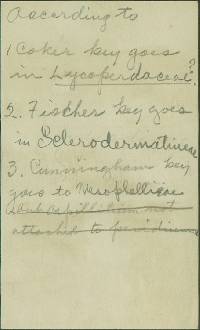 According to
1 Coker key goes
in Lycoperdaceae?
2. Fischer key goes
in Sclerodermatineae
3. Cunningham key
goes to Mesophelliaceae
2 but capillitium not
attached to peridium